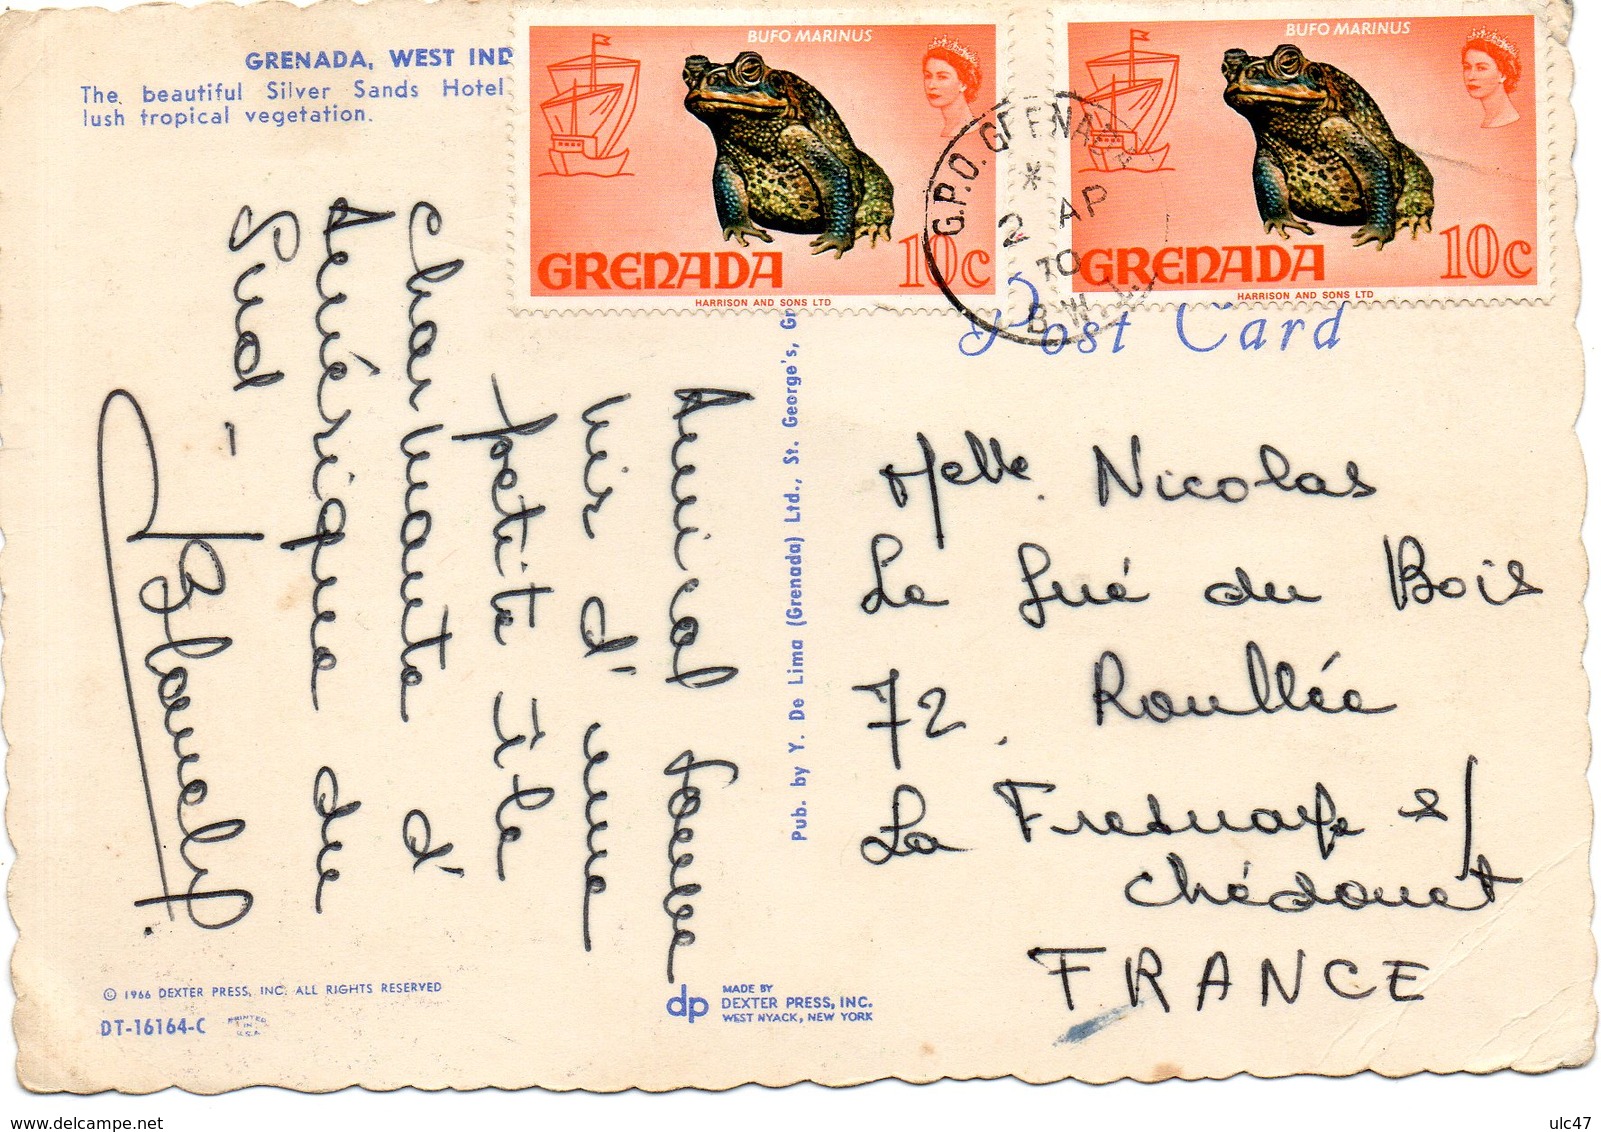 GRENADA, WEST IND
The beautiful Silver Sands Hotel
lush tropical vegetation.
BUFO MARINUS
GRENADA 10c
HARRISON AND SONS LTD
BUFO MARINUS
GRENADA 10c
HARRISON AND SONS LTD
G.P.O. GRENADA
*
2 AP
70
B.W.I.
Post Card
Amical souve
nir d'une
petite île
charmante d'
Amérique du
Sud -
Pub. by Y. De Lima (Grenada) Ltd., St. George's, Gr
Melle. Nicolas
Le Gué du Bois
72. Roullée
La Fresnaye s/
Chédouet
FRANCE
© 1966 DEXTER PRESS, INC. ALL RIGHTS RESERVED
DT-16164-C
PRINTED
IN
U.S.A.
dp
MADE BY
DEXTER PRESS, INC.
WEST NYACK, NEW YORK
www.delcampe.net
ulc47